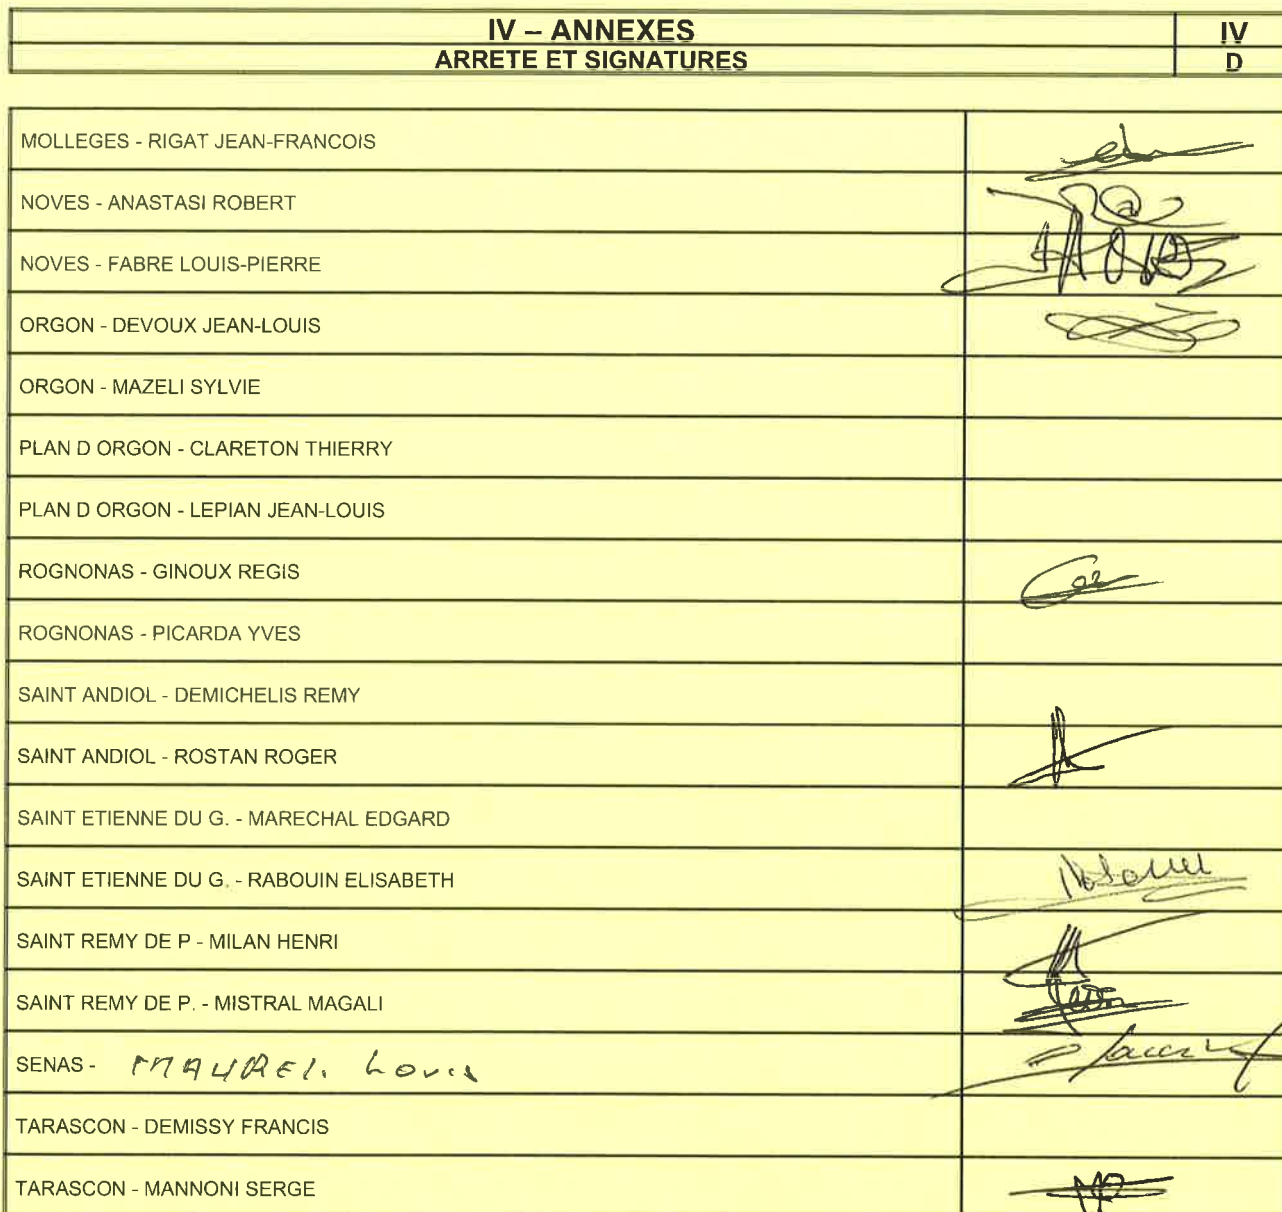 IV – ANNEXES
IV
ARRETE ET SIGNATURES
D
MOLLEGES - RIGAT JEAN-FRANCOIS
NOVES - ANASTASI ROBERT
NOVES - FABRE LOUIS-PIERRE
ORGON - DEVOUX JEAN-LOUIS
ORGON - MAZELI SYLVIE
PLAN D ORGON - CLARETON THIERRY
PLAN D ORGON - LEPIAN JEAN-LOUIS
ROGNONAS - GINOUX REGIS
ROGNONAS - PICARDA YVES
SAINT ANDIOL - DEMICHELIS REMY
SAINT ANDIOL - ROSTAN ROGER
SAINT ETIENNE DU G. - MARECHAL EDGARD
SAINT ETIENNE DU G. - RABOUIN ELISABETH
SAINT REMY DE P - MILAN HENRI
SAINT REMY DE P. - MISTRAL MAGALI
SENAS - MAUREL Louis
TARASCON - DEMISSY FRANCIS
TARASCON - MANNONI SERGE